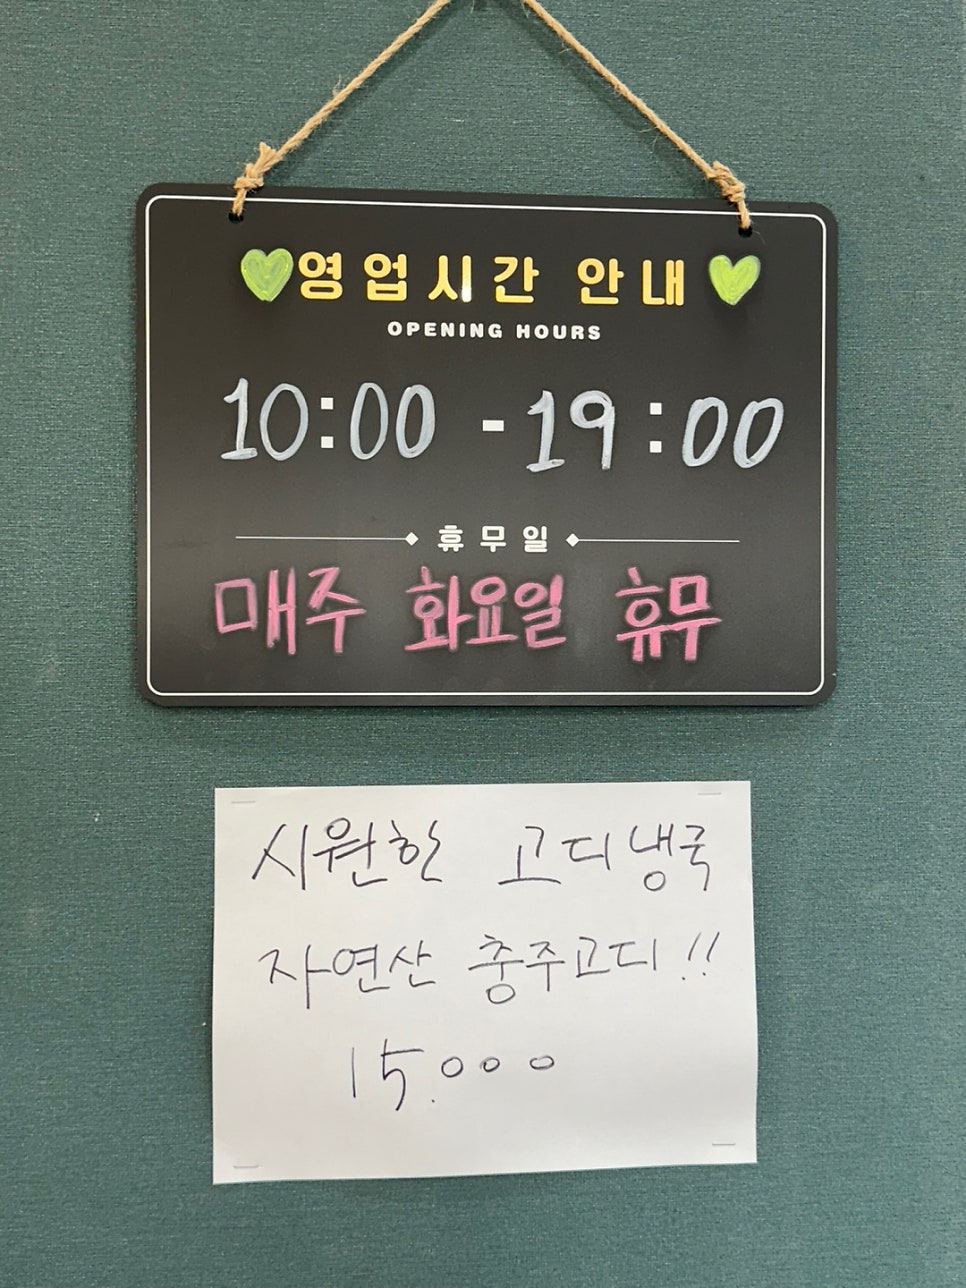 영업시간 안내
OPENING HOURS
10:00 - 19:00
휴무일
매주 화요일 휴무
시원한 고디냉국
자연산 충주고디!!
15.000